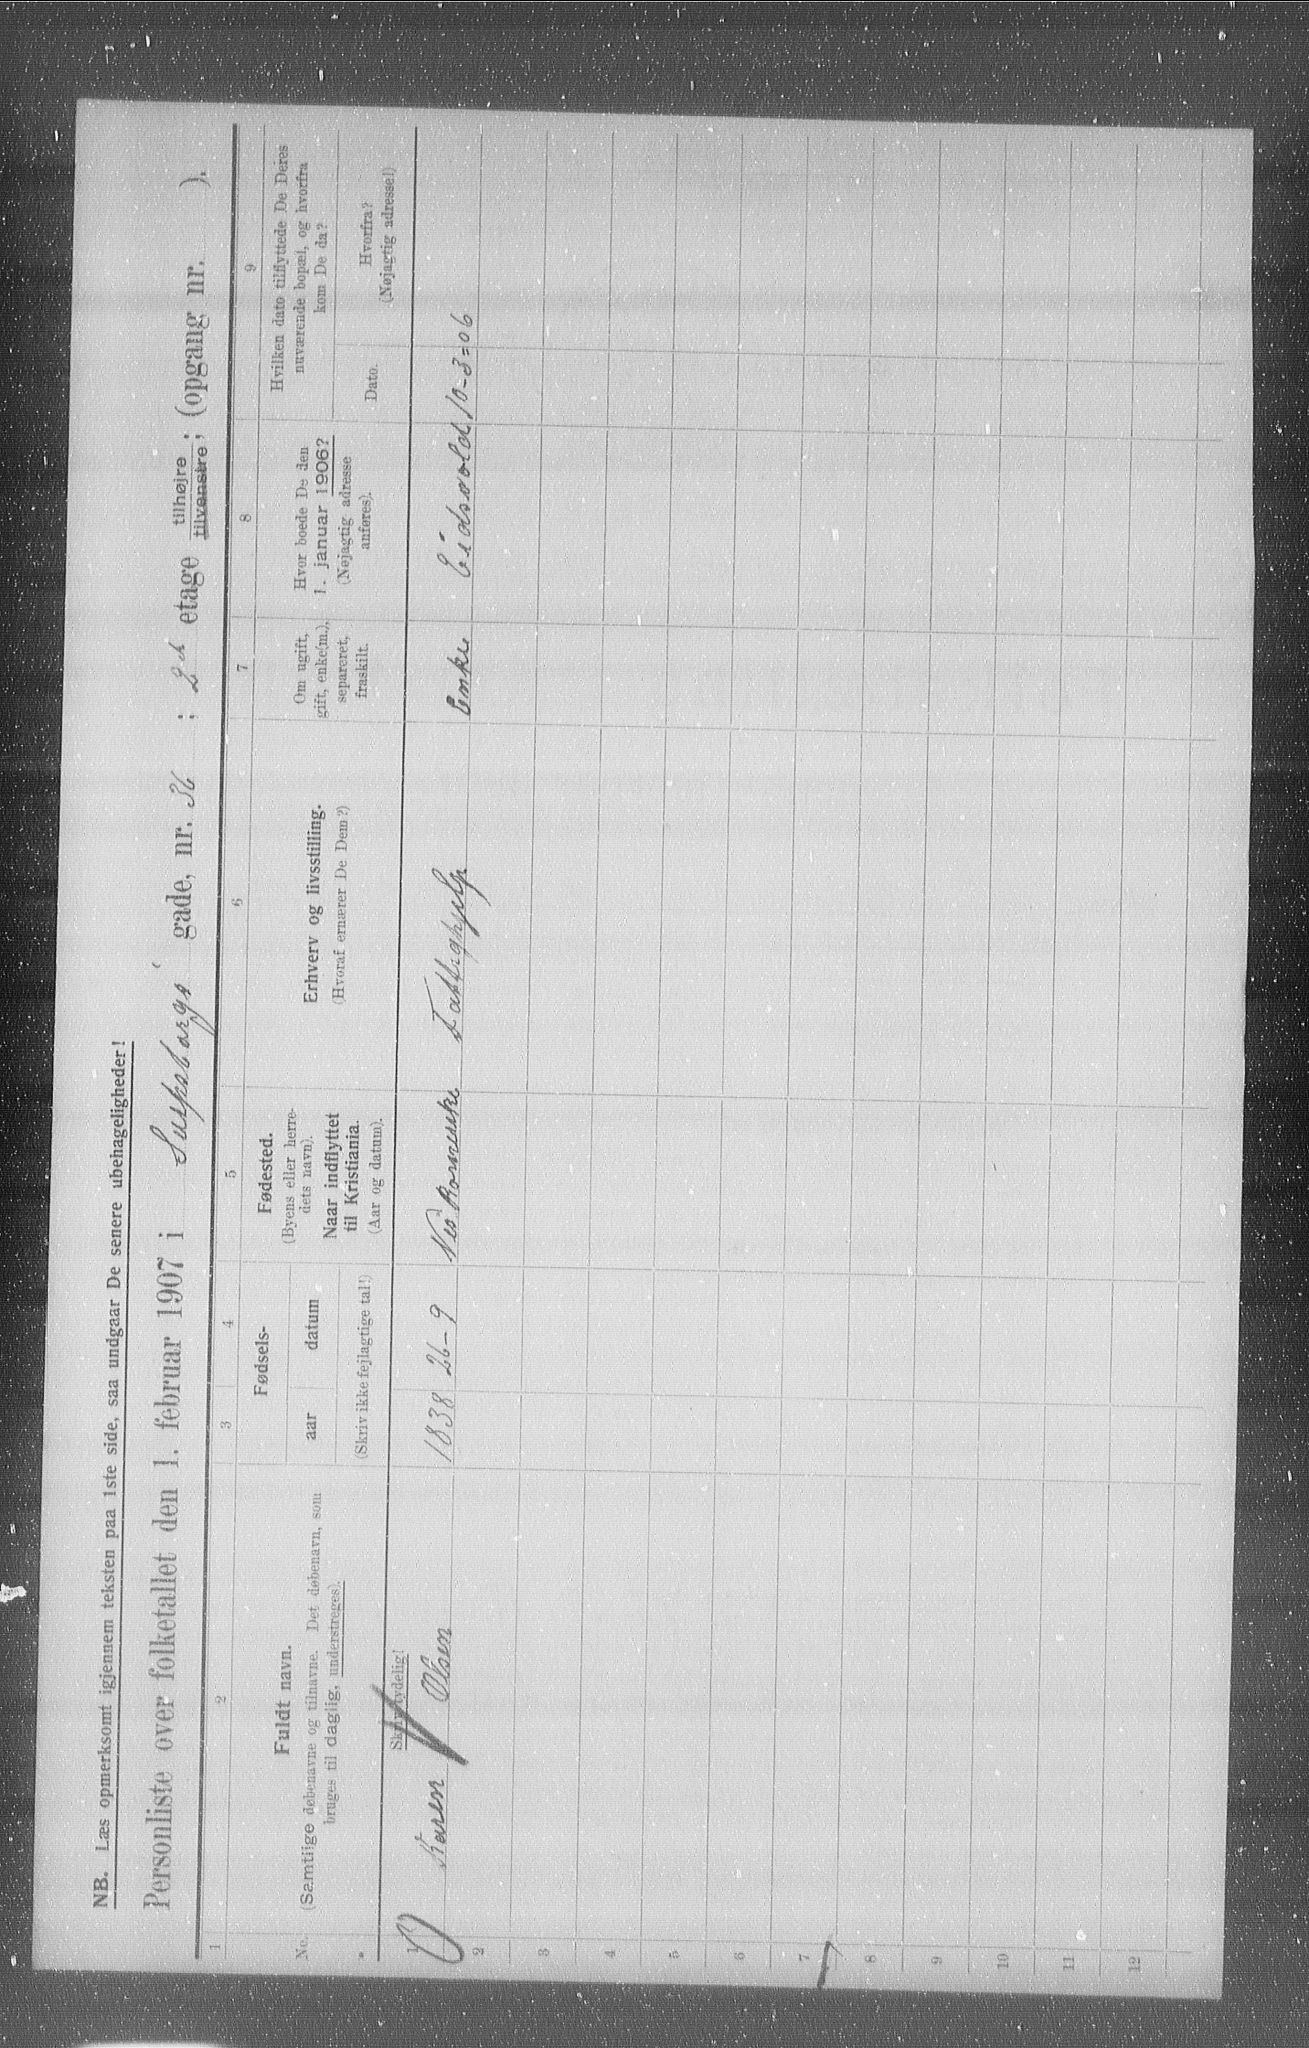 NB. Læs opmerksomt igjennem teksten paa 1ste side, saa undgaar De senere ubehageligheder!
Personliste over folketallet den 1. februar 1907 i Sarpsborgs gade, nr. 36 ; 2den etage tilhøjre tilvenstre; (opgang nr. ).
1 2 3 4 5 6 7 8 9
No.
Fuldt navn.
(Samtlige døbenavne og tilnavne. Det døbenavn, som
bruges til daglig, understreges).
Skriv tydelig!
Fødsels-
aar datum
(Skriv ikke fejlagtige tal!)
Fødested.
(Byens eller herre-
dets navn).
Naar indflyttet
til Kristiania.
(Aar og datum).
Erhverv og livsstilling.
(Hvoraf ernærer De Dem?)
Om ugift,
gift, enke(m.),
separeret,
fraskilt.
Hvor boede De den
1. januar 1906?
(Nøjagtig adresse
anføres).
Hvilken dato tilflyttede De Deres
nuværende bopæl, og hvorfra
kom De da?
Dato.
Hvorfra?
(Nøjagtig adresse!)
1 Karen Olsen 1838 26-9 Nes Romerike Fattighjelp Enke Eidsvold 10-3-06
2
3
4
5
6
7
8
9
10
11
12